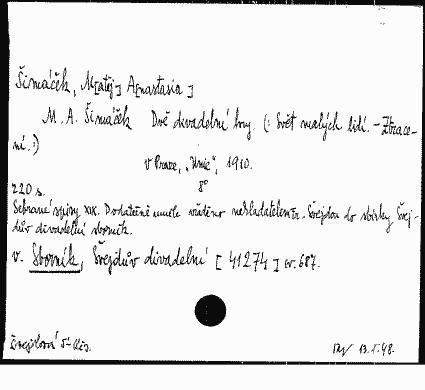 Šimáček, M[atěj] A[nastasia]
M. A. Šimáček Dvě divadelní hry. (: Svět malých lidí. – Ztrace-
ní. :)
V Praze, „Unie", 1910.
220 s. 8°
Sebrané spisy XIX. Dodatečně uměle vřaděno nakladatelem Fr. Švejdou do sbírky Švej-
dův divadelní sborník.
v. Sborník, Švejdův divadelní [41274] sv. 687.
13.I.48.